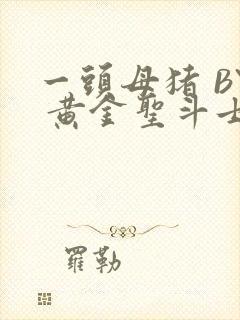 一頭母猪 BY
黄金聖斗士
羅勒